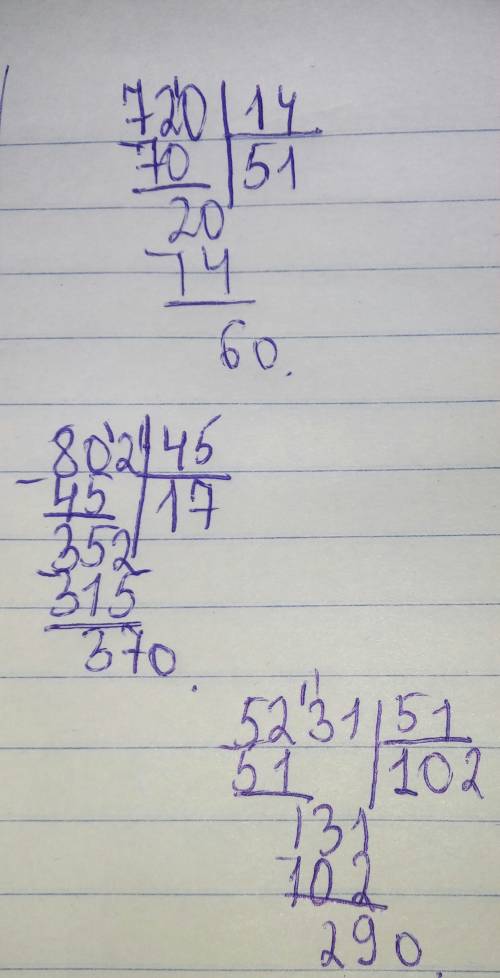 720 14
70 51
20
14
60.
802 45
45 17
352
315
370.
5231 51
51 102
131
102
290.